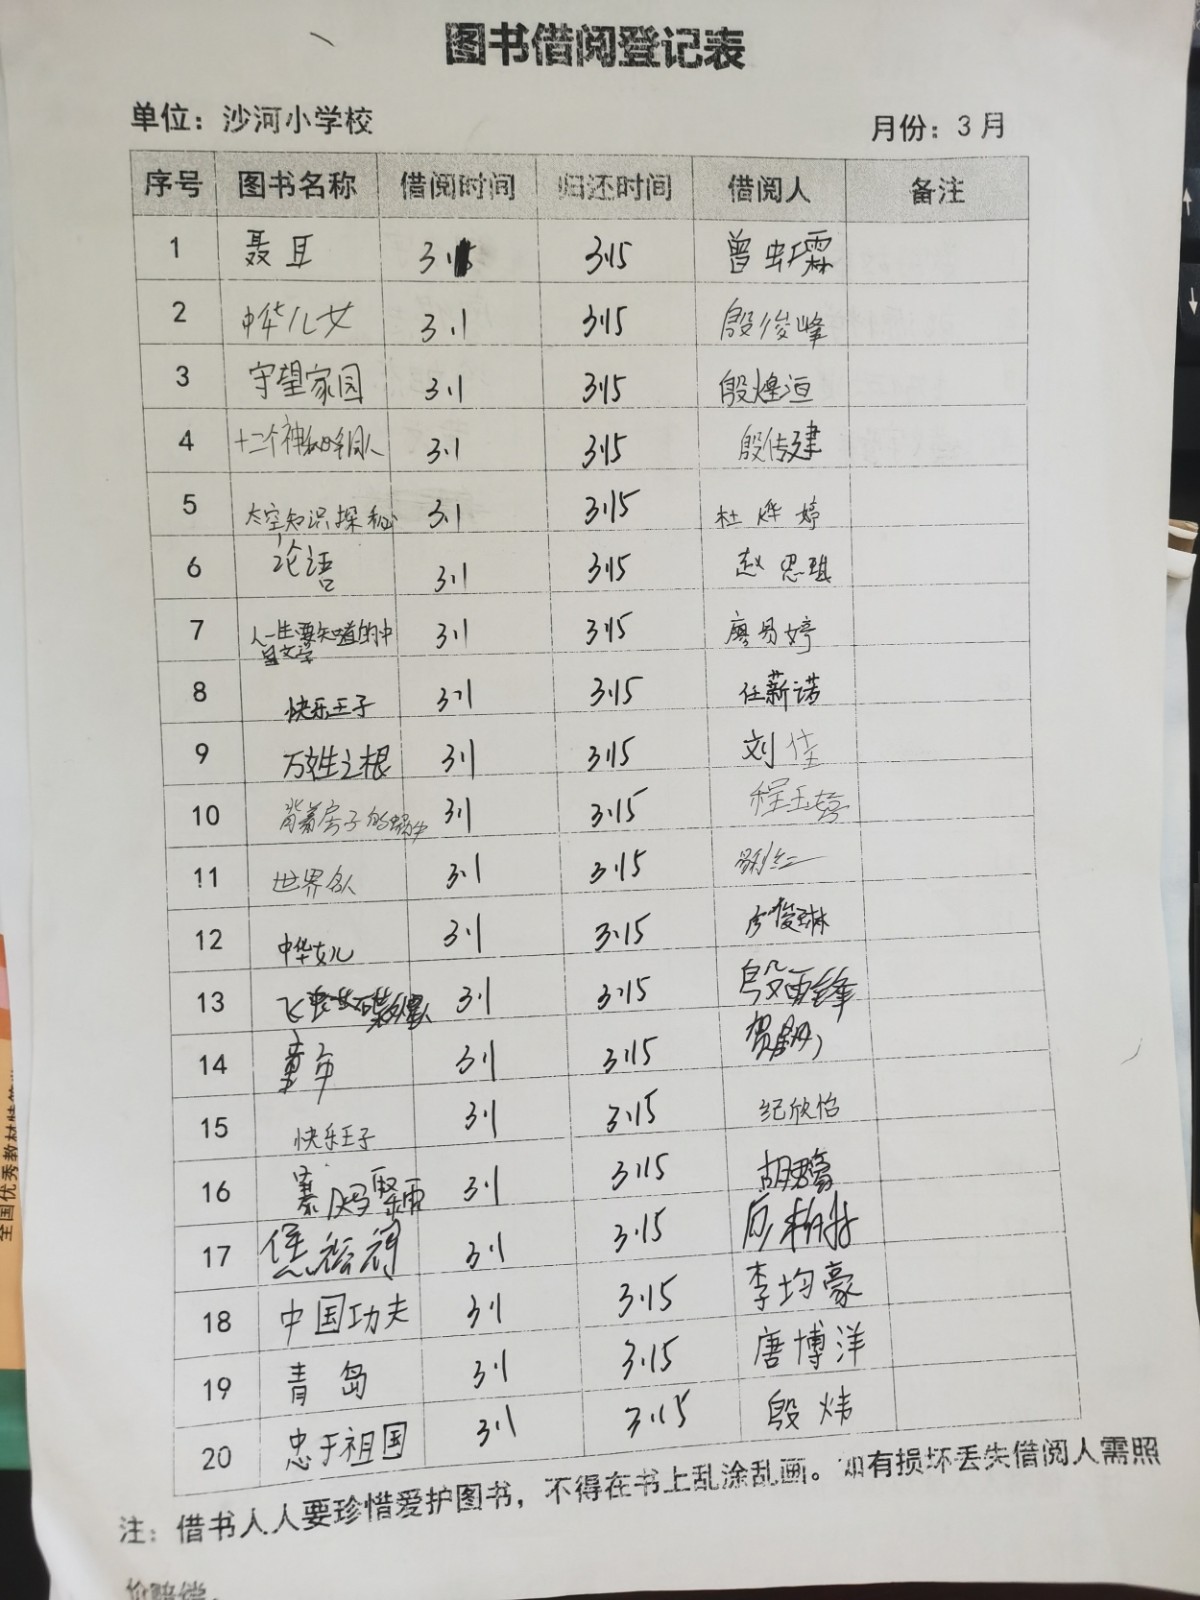 图书借阅登记表
单位：沙河小学校 月份：3月
序号 图书名称 借阅时间 归还时间 借阅人 备注
1 聂耳 3.1 3.15 曾
2 中华儿女 3.1 3.15 殷俊峰
3 守望家园 3.1 3.15 殷煌洹
4 十二个神秘 3.1 3.15 殷传建
5 太空知识探秘 3.1 3.15 杜烨婷
6 论语 3.1 3.15 赵思琪
7 人一生要知道的中国文学 3.1 3.15 廖易婷
8 快乐王子 3.1 3.15 任薪诺
9 万姓之根 3.1 3.15 刘佳
10 背着房子的蜗牛 3.1 3.15 程玉婷
11 世界名人 3.1 3.15
12 中华女儿 3.1 3.15
13 3.1 3.15 殷
14 童年 3.1 3.15 贺
15 快乐王子 3.1 3.15 纪欣怡
16 3.1 3.15 胡
17 焦裕禄 3.1 3.15
18 中国功夫 3.1 3.15 李均豪
19 青岛 3.1 3.15 唐博洋
20 忠于祖国 3.1 3.15 殷炜
注：借书人人要珍惜爱护图书，不得在书上乱涂乱画。如有损坏丢失借阅人需照
价赔偿。